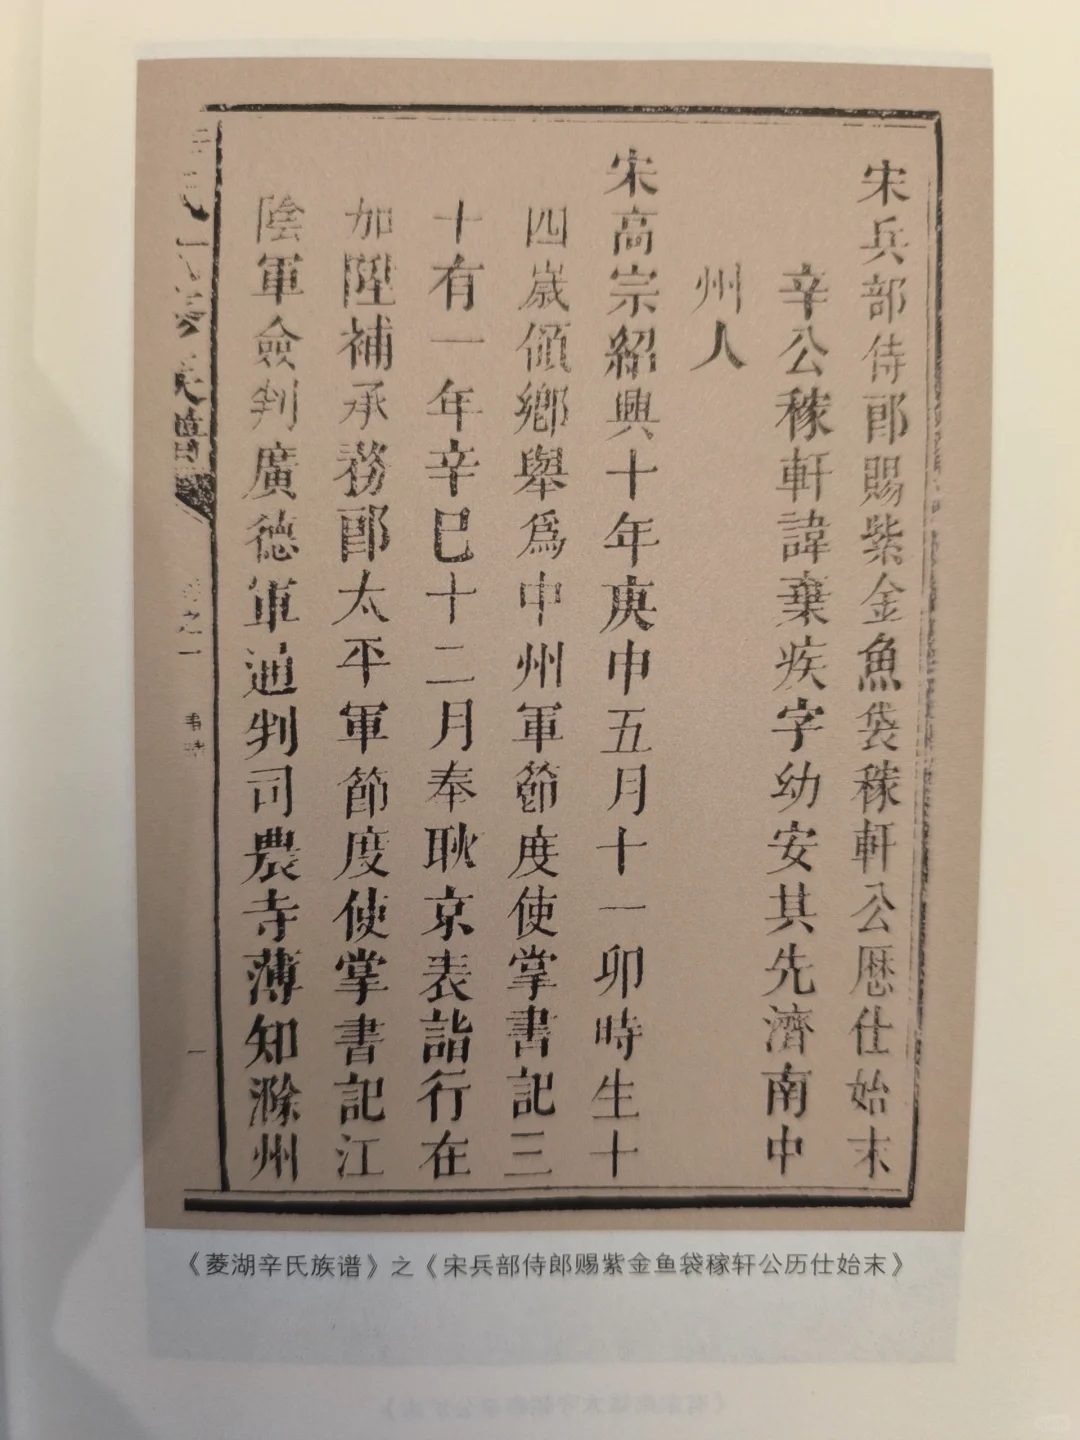 宋兵部侍郎賜紫金魚袋稼軒公歴仕始末
辛公稼軒諱棄疾字幼安其先濟南中
州人
宋高宗紹興十年庚申五月十一卯時生十
四歲領鄉舉爲中州軍節度使掌書記三
十有一年辛巳十二月奉耿京表詣行在
加陞補承務郎太平軍節度使掌書記江
陰軍僉判廣德軍通判司農寺薄知滁州
之一
一
《菱湖辛氏族谱》之《宋兵部侍郎赐紫金鱼袋稼轩公历仕始末》